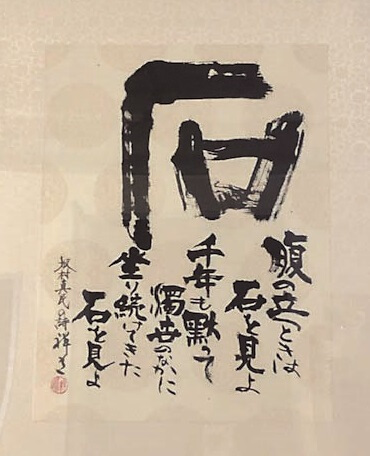 石
腹の立つときは
石を見よ
千年も黙って
濁世のなかに
坐り続けてきた
石を見よ
坂村真民の詩 祥